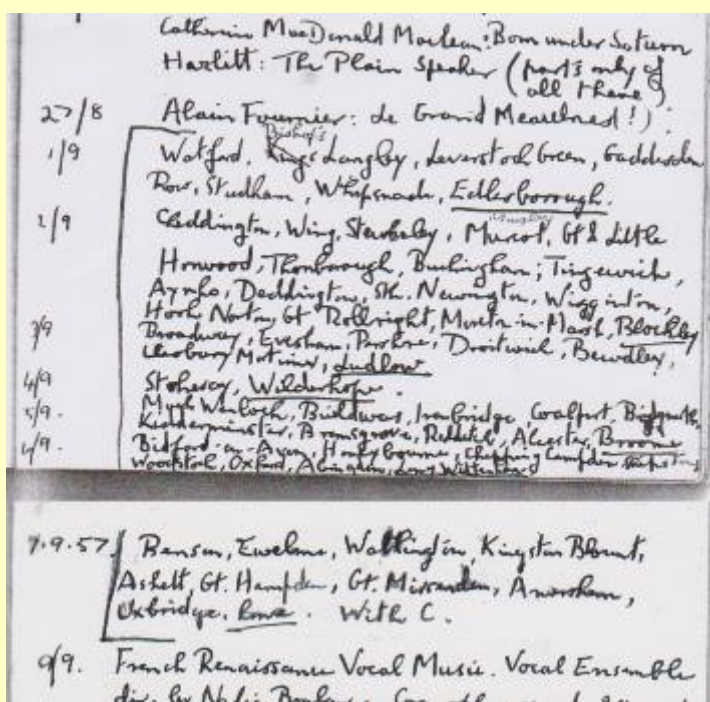 Catherine MacDonald Maclean: Born under Saturn
Hazlitt: The Plain Speaker (parts only of
all these)
27/8 Alain Fournier: Le Grand Meaulnes!)
Bishop's
1/9 Watford, Kings Langley, Leverstock Green, Gaddesden
Row, Studham, Whipsnade, Edlesborough.
2/9 Cheddington, Wing, Stewkley, Mursley, Gt & Little
Horwood, Thornborough, Buckingham, Tingewick,
Aynho, Deddington, Sth. Newington, Wigginton,
Hook Norton, Gt Rollright, Moreton-in-Marsh, Blockley
3/9 Broadway, Evesham, Pershore, Droitwich, Bewdley,
Cleobury Mortimer, Ludlow.
4/9 Stokesay, Wilderhope.
5/9. Much Wenlock, Buildwas, Ironbridge, Coalport, Bridgnorth,
Kidderminster, Bromsgrove, Redditch, Alcester, Broome
Bidford-on-Avon, Honeybourne, Chipping Campden,
Woodstock, Oxford, Abingdon, Long Wittenham
7.9.57 Benson, Ewelme, Watlington, Kingston Blount,
Askett, Gt. Hampden, Gt. Missenden, Amersham,
Uxbridge, home. With C.
9/9. French Renaissance Vocal Music. Vocal Ensemble
dir. by Nadia Boulanger.